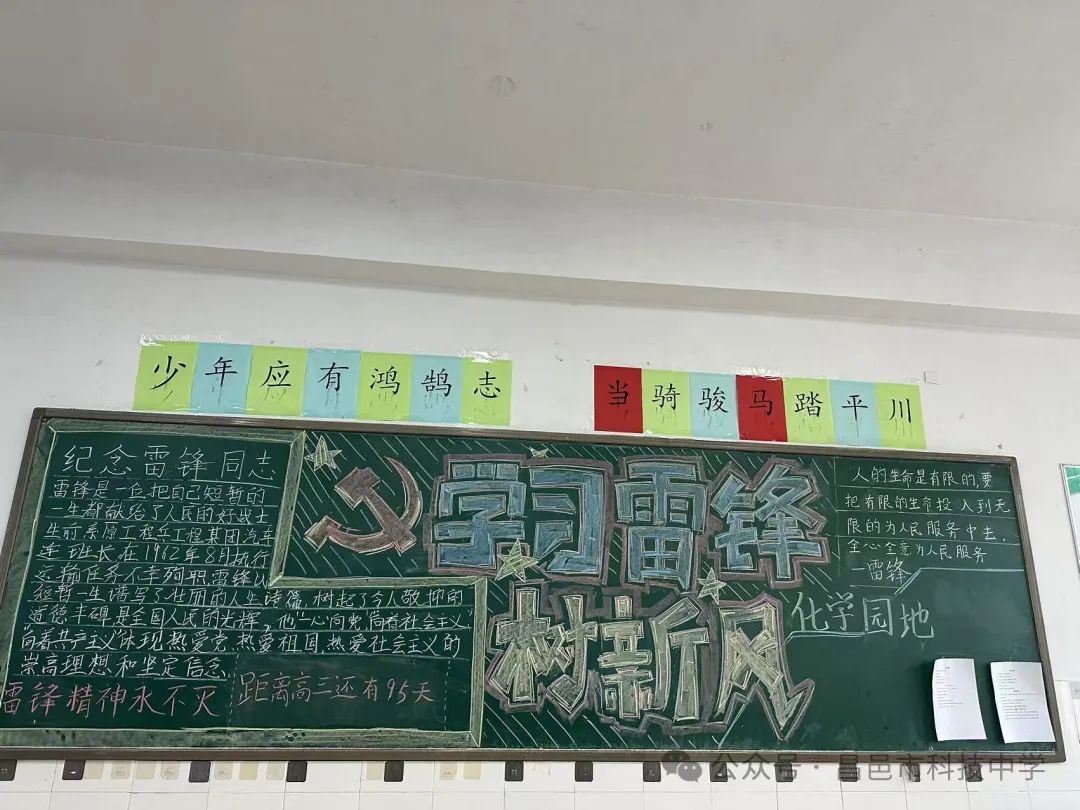 少年应有鸿鹄志
当骑骏马踏平川
纪念雷锋同志
雷锋是一位把自己短暂的
一生都献给了人民的好战士
生前系原工程兵工程某团汽车
连班长在1962年8月执行
运输任务不幸殉职雷锋以
短暂一生谱写了壮丽的人生诗篇,树起了令人敬仰的
道德丰碑是全国人民的光辉,他"一心向党"向着社会主义
向着共产主义"体现热爱党,热爱祖国,热爱社会主义的
崇高理想和坚定信念
雷锋精神永不灭
距离高三还有95天
学习雷锋
树新风
人的生命是有限的,要
把有限的生命投入到无
限的为人民服务中去,
全心全意为人民服务
—雷锋
化学园地
公众号·昌邑市科技中学